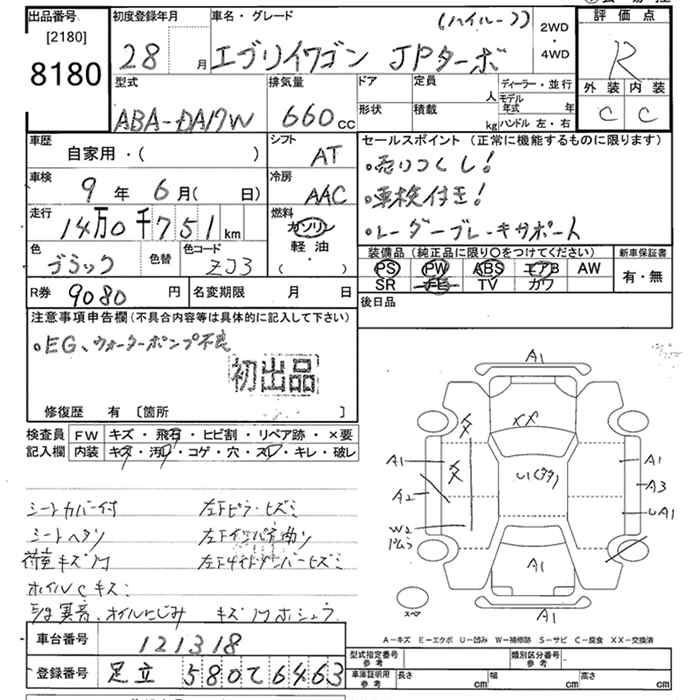 出品番号
[2180]
8180
初度登録年月
28 月
車名・グレード
(ハイルーフ)
エブリイワゴン JPターボ
2WD
・
4WD
評価点
R
外装 内装
C C
型式
ABA-DA17W
排気量
660 cc
ドア
形状
定員
人
積載
kg
ディーラー・並行
モデル年式 年
ハンドル 左・右
車歴
自家用・( )
シフト
AT
車検
9年 6月( 日)
冷房
AAC
走行
14万0千751km
燃料
ガソリン
軽油
( )
色
ブラック
色替
色コード
ZJ3
R券 9080円
名変期限 月 日
セールスポイント (正常に機能するものに限ります)
・売りつくし!
・車検付き!
・レーダーブレーキサポート
装備品 (純正品に限り○をつけてください)
PS PW ABS エアB AW
SR ナビ TV カワ
新車保証書
有・無
後日品
注意事項申告欄(不具合内容等は具体的に記入して下さい)
・EG、ウォーターポンプ不良
初出品
修復歴 有 〔箇所 〕
検査員記入欄
FW キズ・飛石・ヒビ割・リペア跡・×要
内装 キズ・汚れ・コゲ・穴・スレ・キレ・破レ
シートカバー付 左下ピラーヒズミ
シートヘタリ 左下インパネ曲り
荷室キズ汚 左下サイドメンバーヒズミ
ホイルCキズ
異音、オイルにじみ キズ
車台番号 121318
登録番号 足立 580て6463
A1
XX
A1
A2
W2
U1(タタ)
A1
A3
UA1
A1
A1
スペア
A-キズ E-エクボ U-凹み W-補修跡 S-サビ C-腐食 XX-交換済
型式指定番号 参考
類別区分番号 参考
車庫証明用 参考
長さ cm
幅 cm
高さ cm